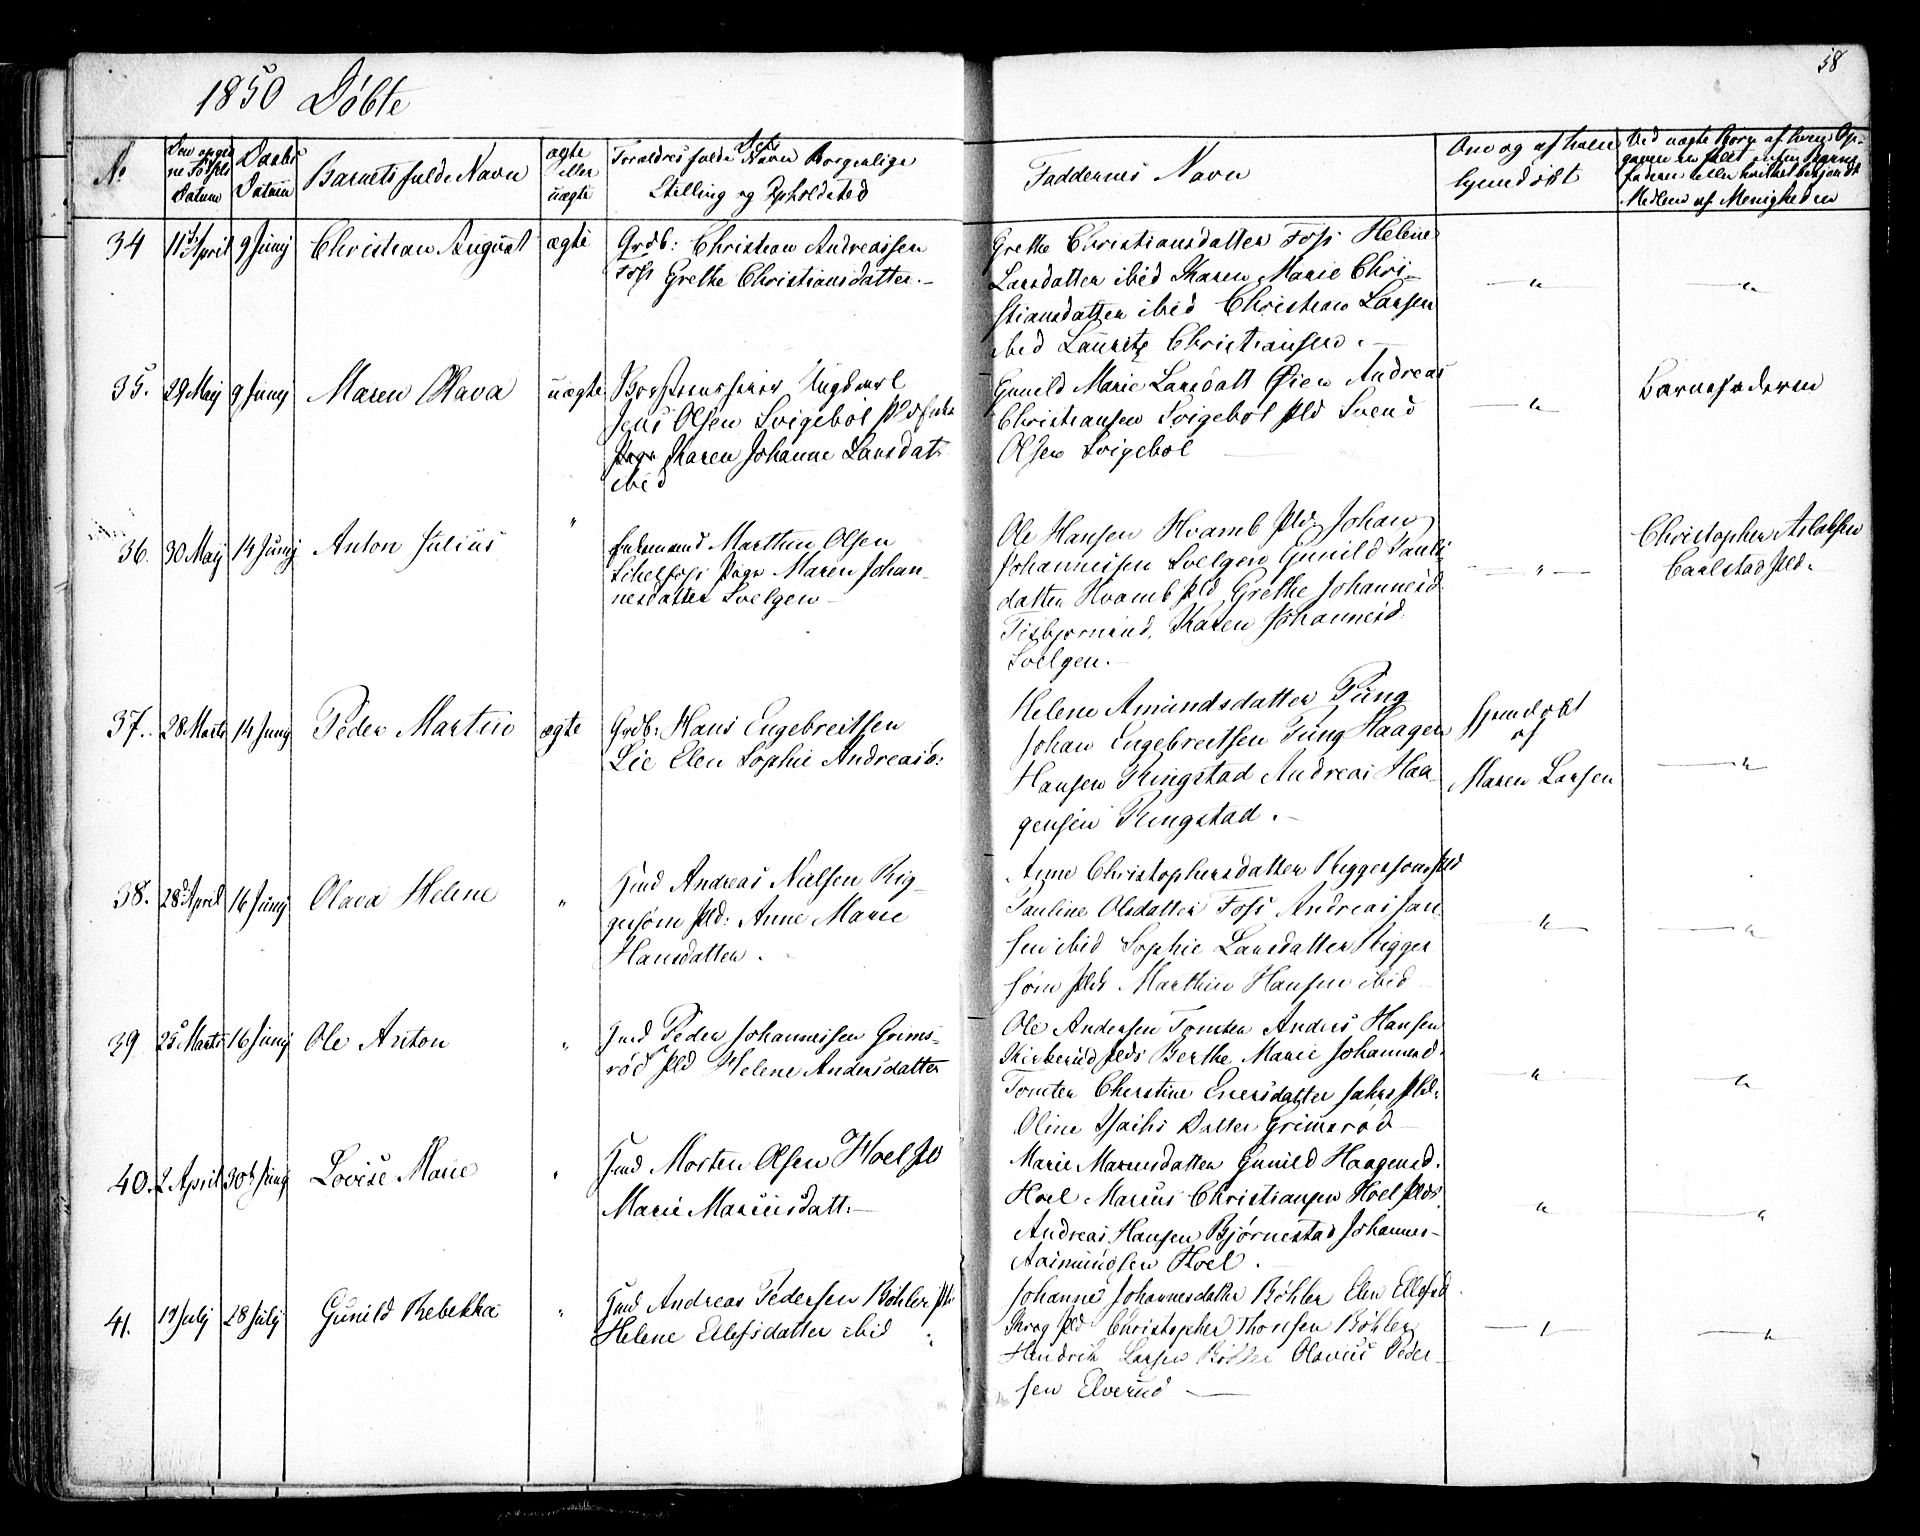 38
1850 Døbte
No
Den opgivne Fødsels Datum
Daabs Datum
Barnets fulde Navn
ægte eller uægte
Forældres fulde Navn Borgerlige
Stilling og Opholdsted
Faddernes Navn
Om og af hvem
hjemdøbt
Medlem af Menigheden
34 11te April 9 Junij Christian August ægte
Grdb: Christian Andreassen
Foss Grethe Christiansdatter.
Grethe Christiansdatter Foss Helene
Larsdatter ibid Karen Marie Chri-
stiansdatter ibid Christian Larsen
ibid Lauritz Christiansen.
35. 29 Maij 9 Junij Maren Olava uægte
Ungkarl
Jens Olsen Svigebøl Pld Enke
Pige Karen Johanne Larsdat
ibid
Gunild Marie Larsdatt Øien Andreas
Christiansen Svigebøl Pld Svend
Olsen Svigebøl
Barnefaderen
36. 30 Maij 14 Junij Anton Julius "
Enkemand Marthin Olsen
Pige Maren Johan-
nesdatter Svelgen
Ole Hansen Hvamb Pld Johan
Johannessen Svelgen Gunild Pauls
datter Hvamb Pld Grethe Johannesd.
Karen Johannesd.
Svelgen.
Christopher Aslaksen
Carlstad Pld.
37. 28 Marts 14 Junij Peder Martin ægte
Grdb: Hans Engebretsen
Lie Elen Sophie Andreasd:
Helene Amundsdatter Tung
Johan Engebretsen Tung Haagen
Hansen Ringstad Andreas Haa-
gensen Ringstad.
Hjemdøbt
af
Maren Larsen
38. 28de April 16 Junij Olava Helene "
Hmd Andreas Nielsen Rig-
gesøm Pld: Anne Marie
Hansdatter.
Anne Christophersdatter Riggesøm Pld
Pauline Olsdatter Foss Andreas Jan-
sen ibid Sophie Larsdatter Rigge
søm Pld. Marthin Hansen ibid
39 25 Marts 16 Junij Ole Anton "
Hmd Peder Johannessen Grims-
rød Pld Helene Andersdatter
Ole Andersen Tomter Anders Hansen
Kirkerud Plds Berthe Marie Johannesd.
Tomter Cherstine Enersdatter Pld.
Oline Isachs Datter Grimsrød
40. 2 April 30te Junij Lovise Marie "
Hmd Morten Olsen Hoel Pld
Marie Marcusdatt.
Marie Marcusdatter Gunild Haagensd.
Hoel Marcus Christiansen Hoel Plds
Andreas Hansen Bjørnestad Johannes
Asimundsen Hoel.
41. 17 Julij 28 Julij Gunild Rebekka "
Hmd Andreas Pedersen Bøhler Pld
Helene Ellefsdatter ibid
Johanne Johannesdatter Bøhler Elen Ellefsd.
Krog Pld Christopher Thorsen Bøhler
Hendrik Larsen Olavus Peder-
sen Elverud